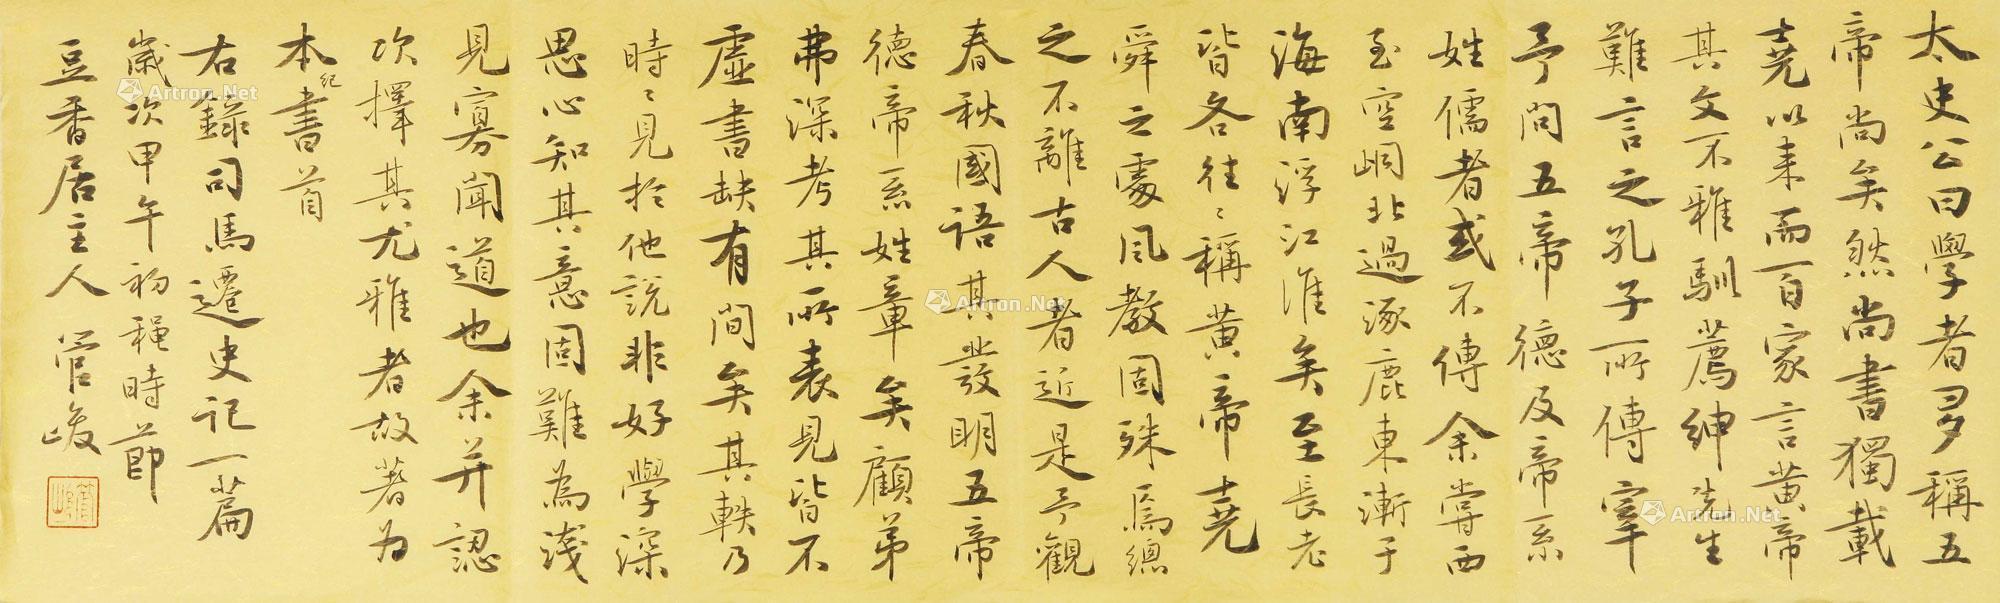 太史公曰學者多稱五
帝尚矣然尚書獨載
堯以来而百家言黄帝
其文不雅馴薦紳先生
難言之孔子所傳宰
予問五帝德及帝系
姓儒者或不傳余嘗西
至空峒北過涿鹿東漸于
海南浮江淮矣至長老
皆各往〻稱黄帝堯
舜之處風教固殊焉總
之不離古人者近是予觀
春秋國語其發明五帝
德帝系姓章矣顧弟
弗深考其所表見皆不
虛書缺有間矣其軼乃
時〻見於他說非好學深
思心知其意固難為淺
見寡聞道也余并認
次擇其尤雅者故著为
本紀書首
右錄司馬遷史记一篇
歲次甲午初穐時節
豆香居主人 管峻
管峻
Artron.Net
Artron.Net
Artron.Net
Artron.Net
Artron.Net